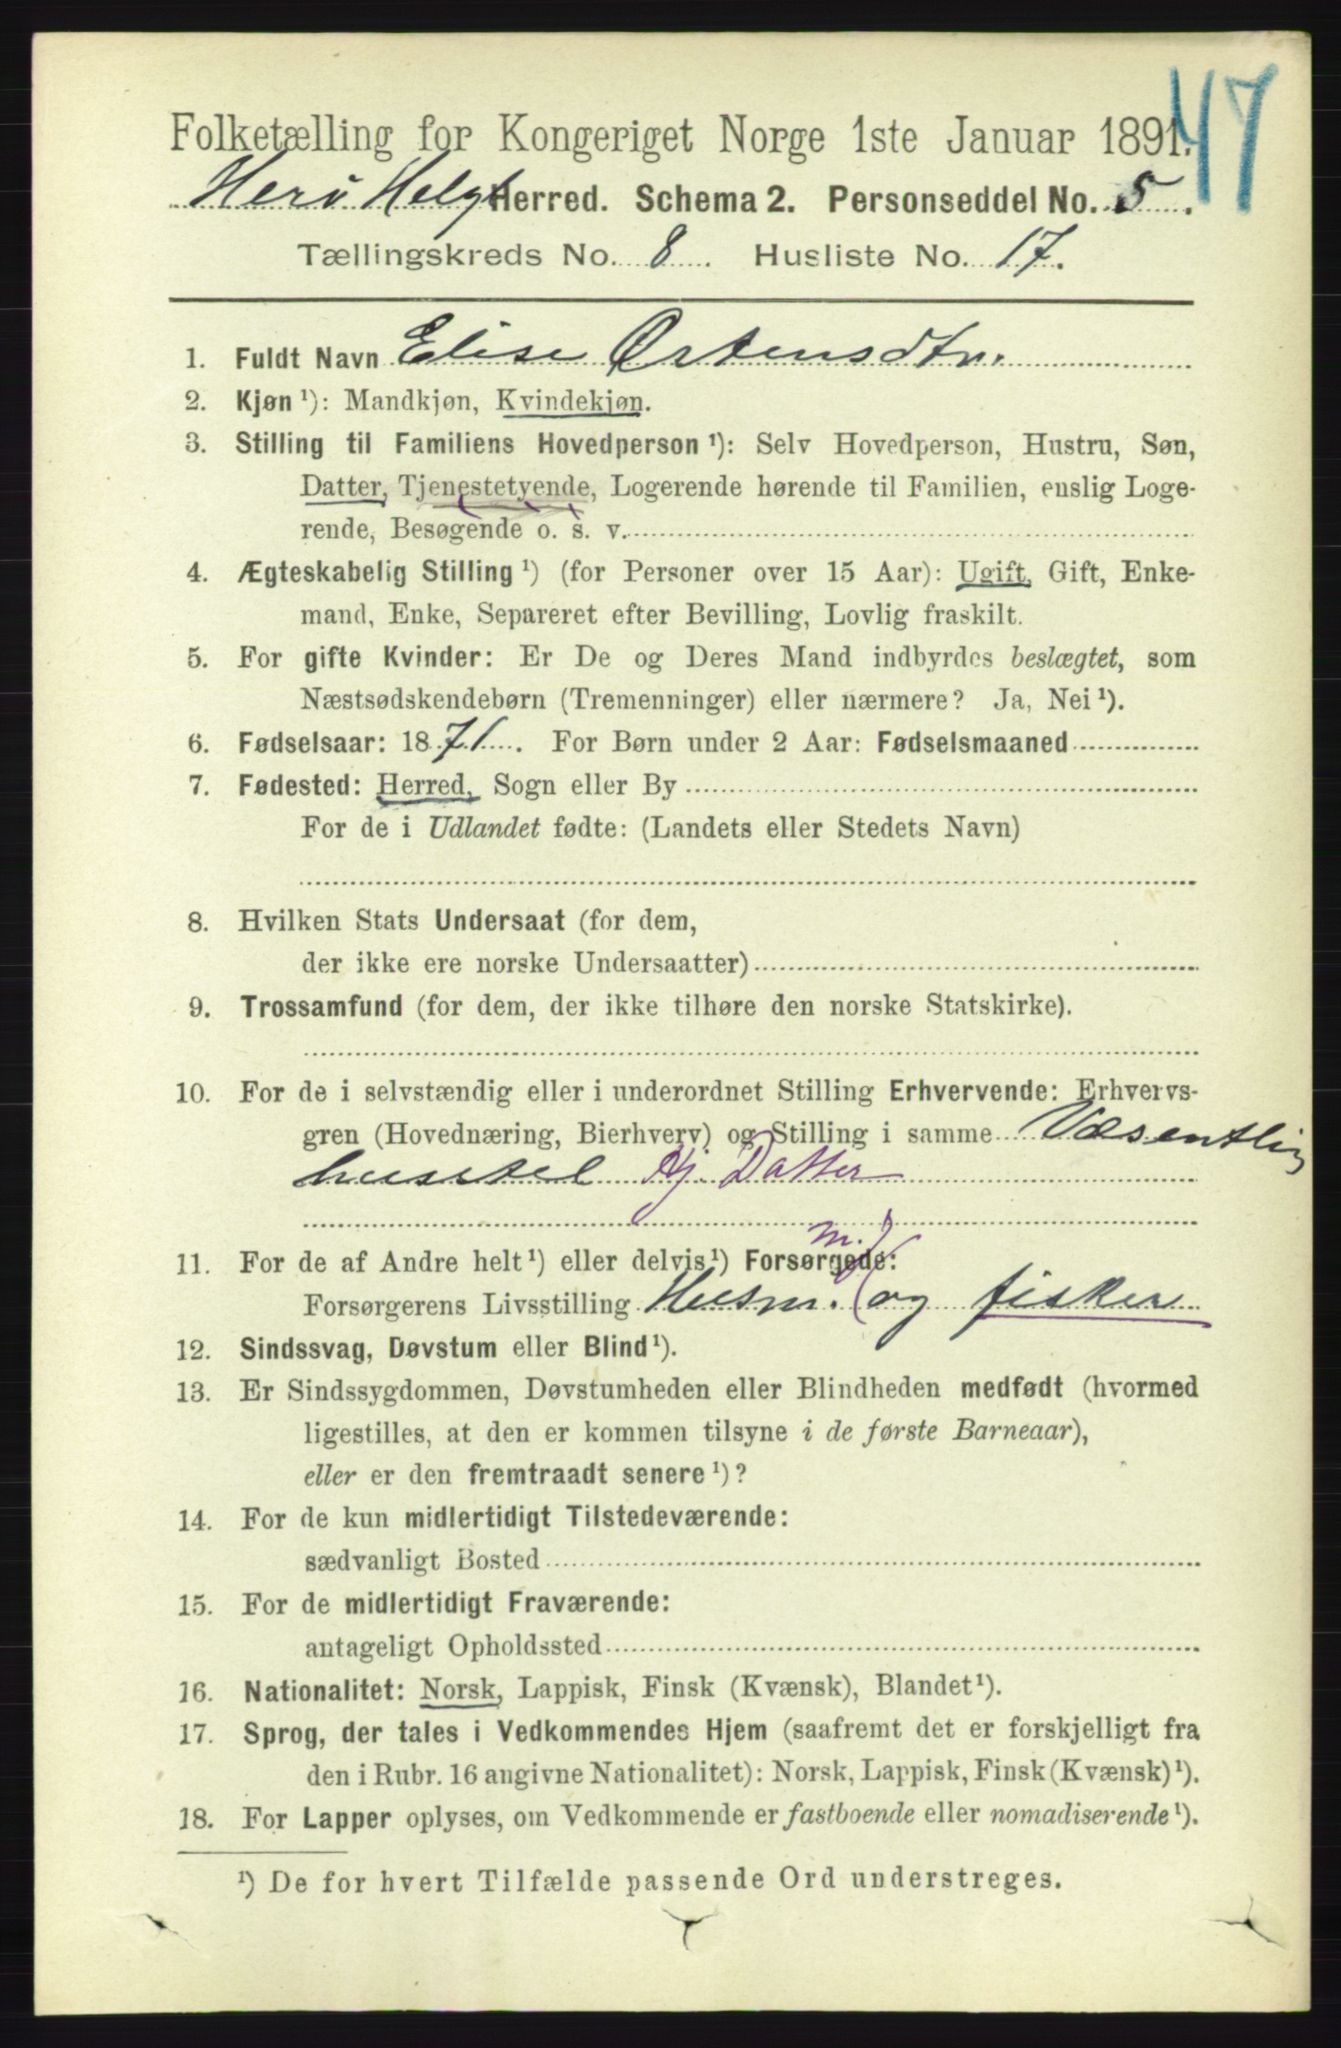 47
Folketælling for Kongeriget Norge 1ste Januar 1891.
Herø Helgl Herred. Schema 2. Personseddel No. 5.
Tællingskreds No. 8. Husliste No. 17.
1. Fuldt Navn Elise Ørtensdtr.
2. Kjøn ¹): Mandkjøn, Kvindekjøn.
3. Stilling til Familiens Hovedperson ¹): Selv Hovedperson, Hustru, Søn,
Datter, Tjenestetyende, Logerende hørende til Familien, enslig Loge-
rende, Besøgende o. s. v.
4. Ægteskabelig Stilling ¹) (for Personer over 15 Aar): Ugift, Gift, Enke-
mand, Enke, Separeret efter Bevilling, Lovlig fraskilt.
5. For gifte Kvinder: Er De og Deres Mand indbyrdes beslægtet, som
Næstsødskendebørn (Tremenninger) eller nærmere? Ja, Nei ¹).
6. Fødselsaar: 1871. For Børn under 2 Aar: Fødselsmaaned
7. Fødested: Herred, Sogn eller By
For de i Udlandet fødte: (Landets eller Stedets Navn)
8. Hvilken Stats Undersaat (for dem,
der ikke ere norske Undersaatter)
9. Trossamfund (for dem, der ikke tilhøre den norske Statskirke).
10. For de i selvstændig eller i underordnet Stilling Erhvervende: Erhvervs-
gren (Hovednæring, Bierhverv) og Stilling i samme Væsentlig
husstel Hj. Datter
11. For de af Andre helt ¹) eller delvis ¹) Forsørgede:
m. J
Forsørgerens Livsstilling Husm. og fisker
12. Sindssvag, Døvstum eller Blind ¹).
13. Er Sindssygdommen, Døvstumheden eller Blindheden medfødt (hvormed
ligestilles, at den er kommen tilsyne i de første Barneaar),
eller er den fremtraadt senere ¹)?
14. For de kun midlertidigt Tilstedeværende:
sædvanligt Bosted
15. For de midlertidigt Fraværende:
antageligt Opholdssted
16. Nationalitet: Norsk, Lappisk, Finsk (Kvænsk), Blandet ¹).
17. Sprog, der tales i Vedkommendes Hjem (saafremt det er forskjelligt fra
den i Rubr. 16 angivne Nationalitet): Norsk, Lappisk, Finsk (Kvænsk) ¹).
18. For Lapper oplyses, om Vedkommende er fastboende eller nomadiserende ¹).
¹) De for hvert Tilfælde passende Ord understreges.